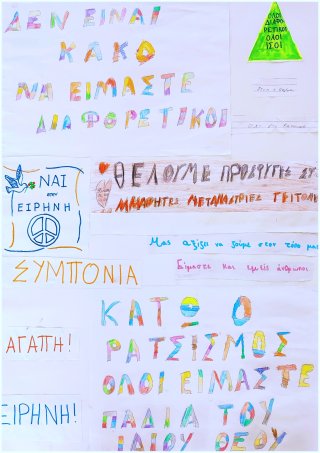 ΔΕΝ ΕΙΝΑΙ
ΚΑΚΟ
ΝΑ ΕΙΜΑΣΤΕ
ΔΙΑΦΟΡΕΤΙΚΟΙ
ΟΛΟΙ
ΔΙΑΦΟ
ΡΕΤΙΚΟΙ
ΟΛΟΙ
ΙΣΟΙ
ΝΑΙ
ΣΤΗΝ
ΕΙΡΗΝΗ
ΘΕΛΟΥΜΕ ΠΡΟΣΦΥΓΕΣ ΣΥ
ΜΑΘΗΤΕΣ ΜΕΤΑΝΑΣΤΡΙΕΣ ΓΕΙΤΟΝΙ
Μας αξίζει να ζούμε στον τόπο μας
Είμαστε και εμείς άνθρωποι
ΣΥΜΠΟΝΙΑ
ΚΑΤΩ Ο
ΡΑΤΣΙΣΜΟΣ
ΟΛΟΙ ΕΙΜΑΣΤΕ
ΠΑΔΙΑ ΤΟΥ
ΙΔΙΟΥ ΘΕΟΥ
ΑΓΑΠΗ!
ΕΙΡΗΝΗ!